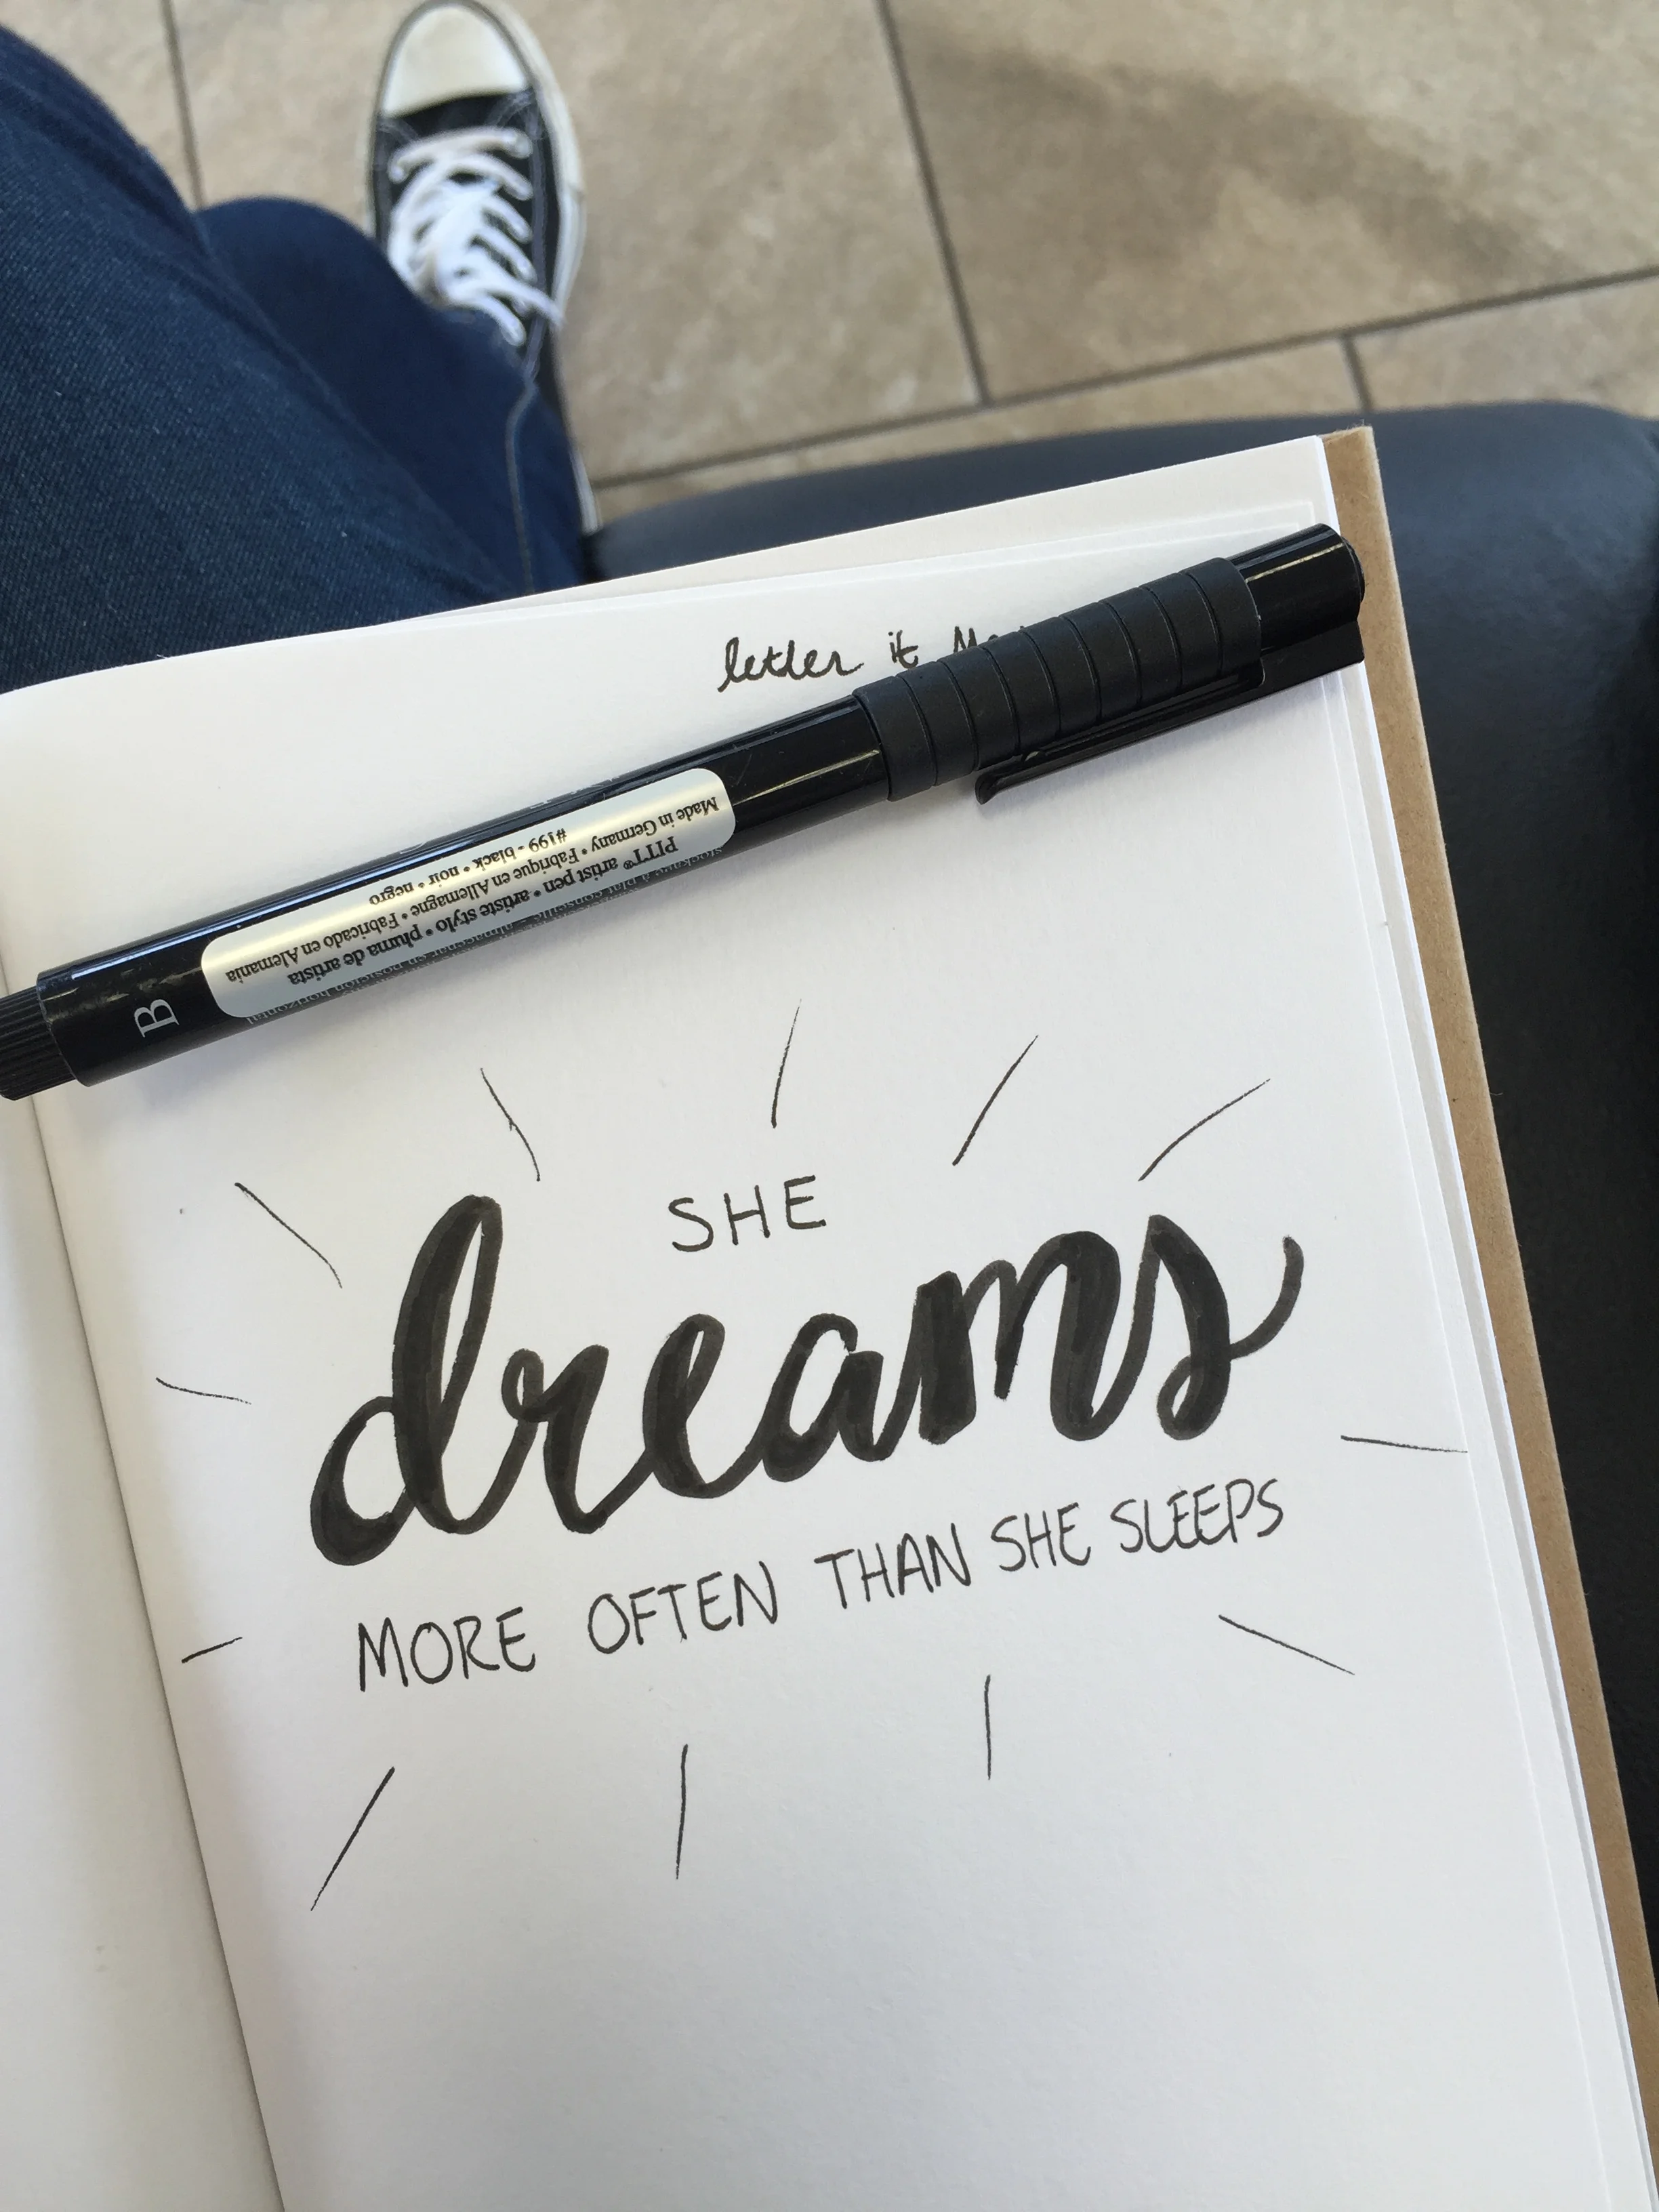 letter it
SHE
dreams
MORE OFTEN THAN SHE SLEEPS
B
PITT® artist pen • artiste stylo • pluma de artista
Made in Germany • Fabriqué en Allemagne • Fabricado en Alemania
#199 - black • noir • negro